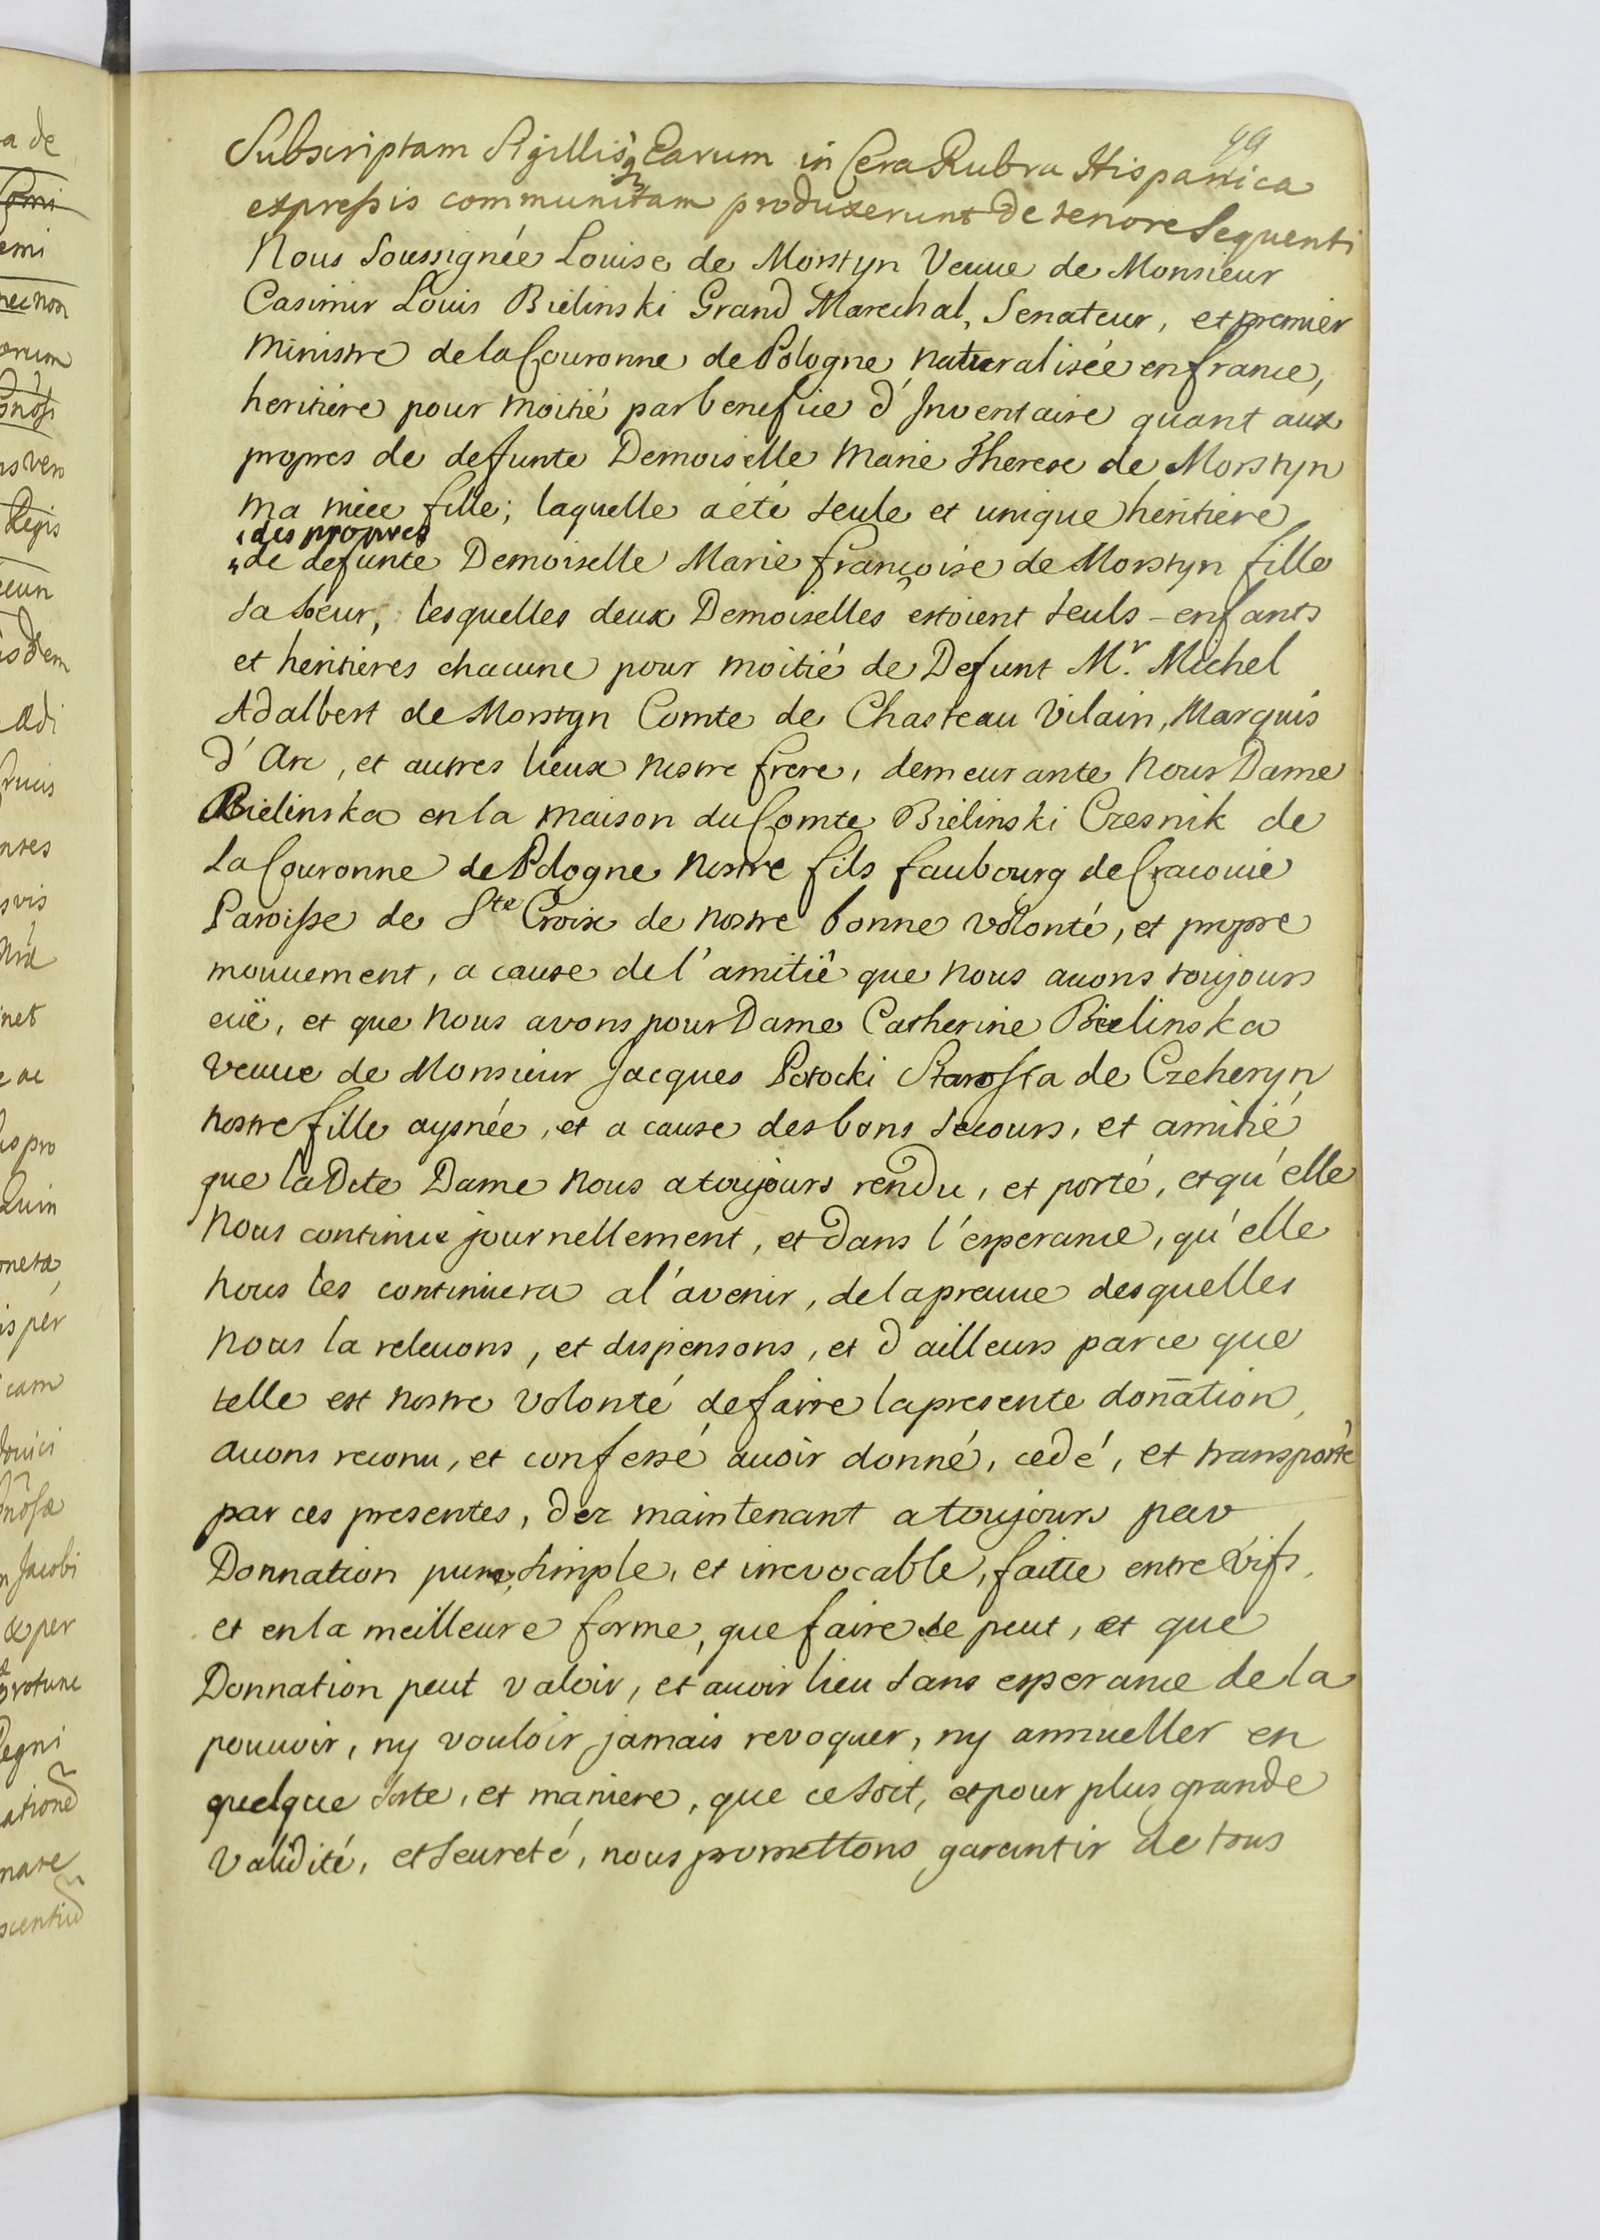 99
Subscriptam Sigillisq; Earum in Cera Rubra Hispanica
expressis communitam produxerunt de tenore Sequenti
Nous Soussignée Louise de Morstyn Veuue de Monsieur
Casimir Louis Biélinski Grand Marechal, Senateur, et premier
Ministre de la Couronne de Pologne naturalisée en france,
heritiére pour moitié par benefice d'Inventaire quant aux
propres de defunte Demoiselle Marie Therese de Morstyn
ma niéce fille; laquelle a été seule et unique heritiere
des propres
de defunte Demoiselle Marie françoise de Morstyn fille
sa soeur, lesquelles deux Demoiselles estoient seuls enfants
et heritieres chacune pour moitié de Defunt Mr. Michel
Adalbert de Morstyn Comte de Chasteau Vilain, Marquis
d'Arc, et autres lieux nostre frere, demeurante Nous Dame
Biélinska en la maison du Comte Biélinski Czesnik de
La Couronne de Pologne nostre fils faubourg de Cracouie
Paroisse de Ste Croix de nostre bonne volonté, et propre
mouuement, a cause de l'amitié que nous auons toujours
eüe, et que Nous avons pour Dame Catherine Bielinska
Veuue de Monsieur Jacques Potocki Starosta de Czeheryn
nostre fille aysnée, et a cause des bons secours, et amitié
que la Dite Dame Nous a toujours rendu, et porté, et qu'elle
Nous continue journellement, et dans l'esperance, qu'elle
nous les continuera a l'avenir, de la preuue desquelles
nous la releuons, et dispensons, et d'ailleurs parce que
telle est nostre volonté de faire la presente donation,
auons reconu, et confessé auoir donné, cedé, et transporté
par ces presentes, dez maintenant a toujours par
Donnation pure, simple, et irrevocable, faitte entre vifs,
et en la meilleure forme, que faire se peut, et que
Donnation peut valoir, et auoir lieu sans esperance de la
pouuoir, ny vouloir jamais revoquer, ny annueller en
quelque sorte, et maniere, que ce soit, et pour plus grande
validité, et seureté, nous promettons garentir de tous